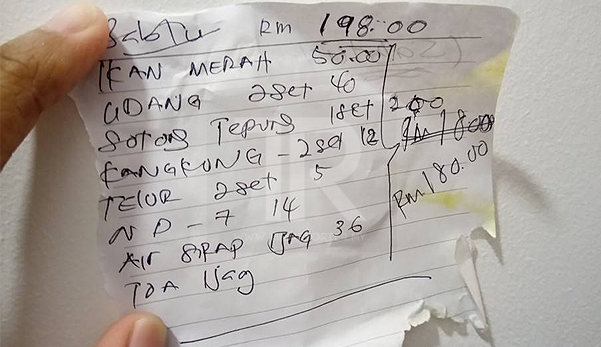 Sabtu RM 198.00
IKAN MERAH 50.00
UDANG 2set 40
Sotong Tepung 1set 200
KANGKUNG - 2set 12 RM 180
TELOR 2set 5 RM 180.00
N P - 7 14
AIR SIRAP 1JAG 36
TEA 1Jag